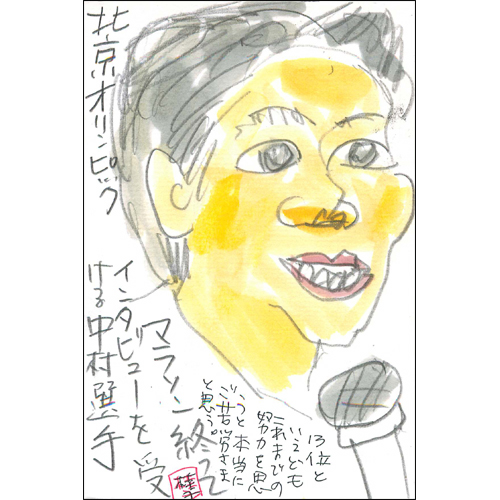 北京オリンピック
マラソン終って
インタビューを受
ける中村選手
13位と
いえども
これまでの
努力を思
うと本当に
ご苦労さま
と思う。